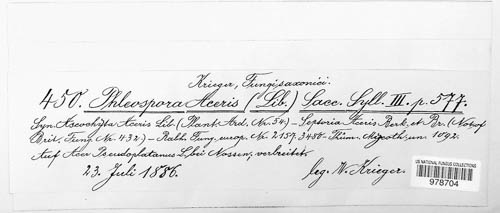 Krieger, Fungi saxonici.
450. Phleospora Aceris (Lib.) Sacc. Syll. III. p. 577.
Syn. Ascochyta Aceris Lib. (Plant. Ard. No. 54) – Septoria Aceris Berk. et Br. (Not. of
Brit. Fung. No. 432.) – Rabh. Fung. europ. No. 2159. 3488 – Thüm. Mycoth. un. 1092.
Auf Acer Pseudoplatanus L. bei Nossen, verbreitet.
23. Juli 1886. leg. W. Krieger.
US NATIONAL FUNGUS COLLECTIONS
978704